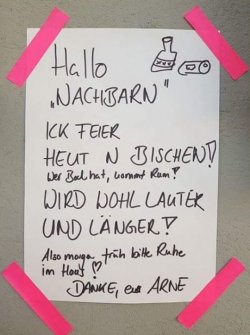 Hallo
„NACHBARN"
ICK FEIER
HEUT N BISCHEN!
Wer Bock hat, kommt Rum!
WIRD WOHL LAUTER
UND LÄNGER!
Also morgen früh bitte Ruhe
im Haus!
DANKE, eua ARNE